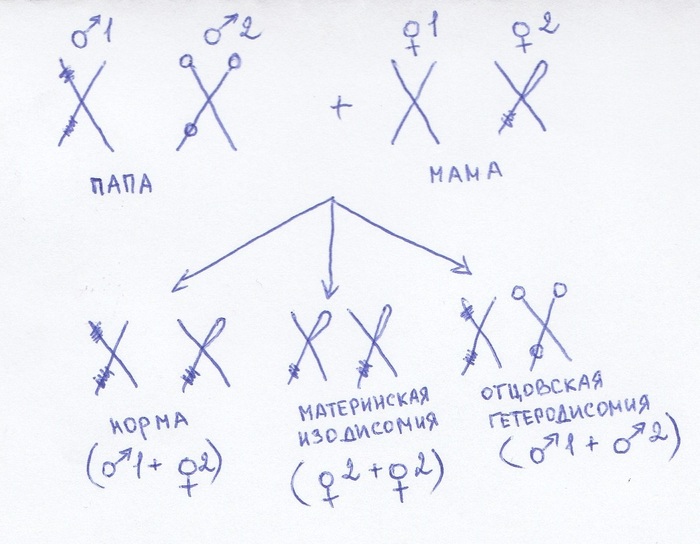 ♂1 ♂2 + ♀1 ♀2
ПАПА
МАМА
НОРМА
(♂1 + ♀2)
МАТЕРИНСКАЯ
ИЗОДИСОМИЯ
(♀2 + ♀2)
ОТЦОВСКАЯ
ГЕТЕРОДИСОМИЯ
(♂1 + ♂2)